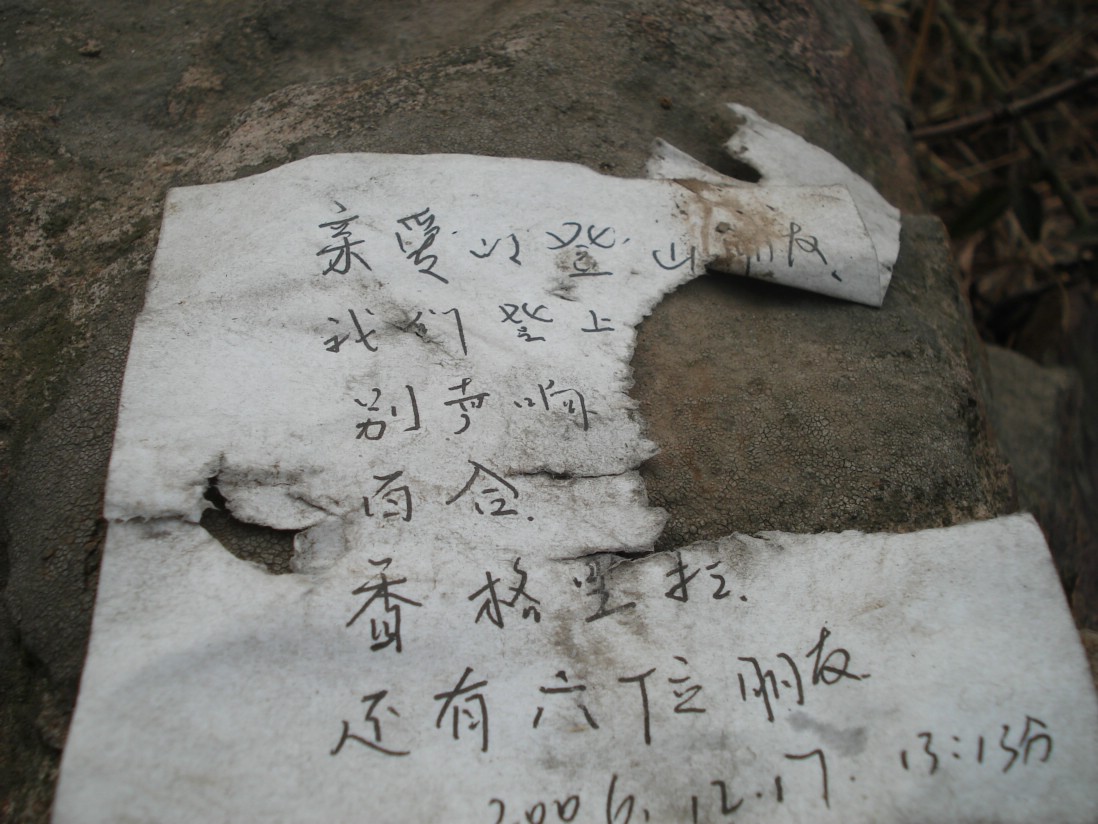 亲爱的登山朋友、
我们登上
别克响
百合.
香格里拉.
还有六位朋友.
2006.12.17. 13:13分